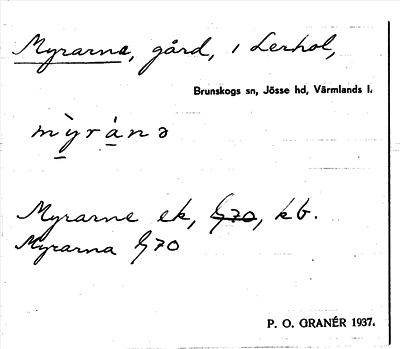 Myrarne, gård, i Lerhol,
Brunskogs sn, Jösse hd, Värmlands l.
mỳrànə
Myrarne ek, G70, kb.
Myrarna G70
P. O. GRANÉR 1937.